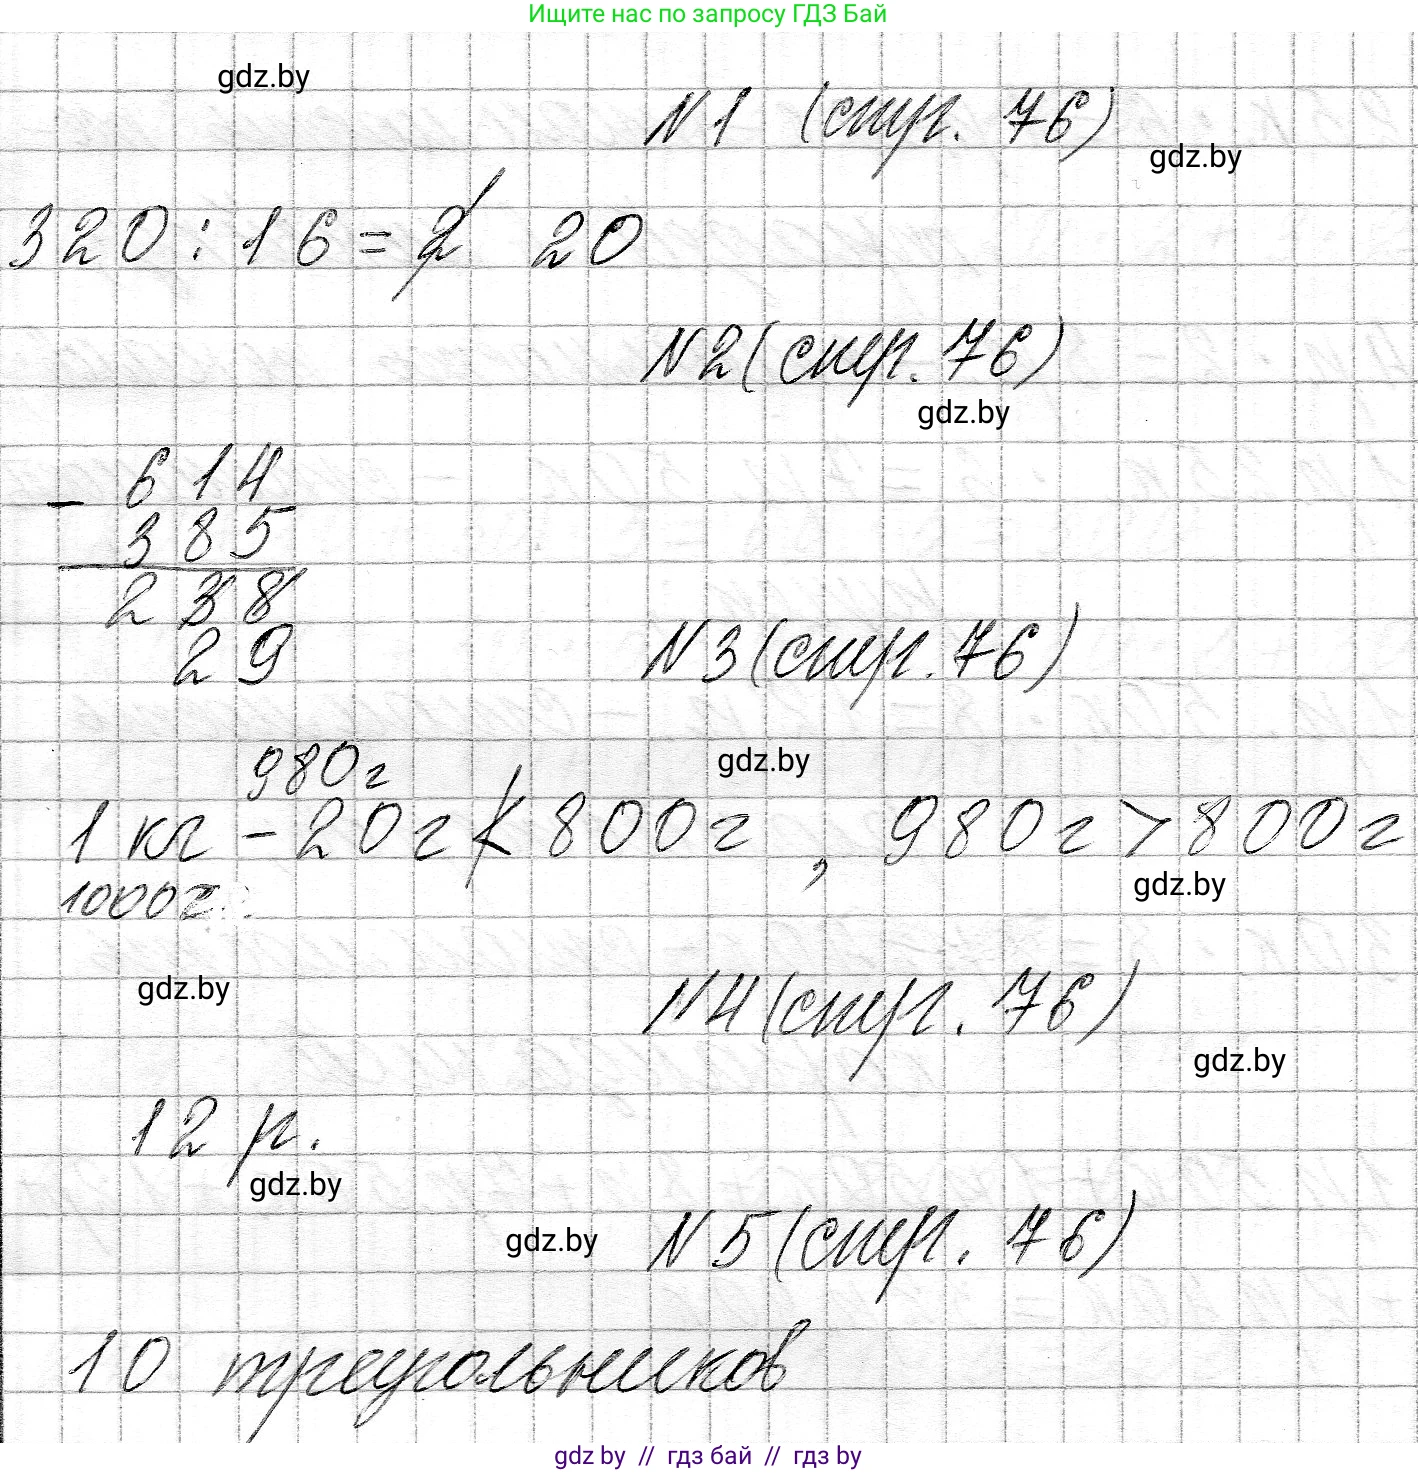 Ищите нас по запросу ГДЗ Бай
gdz.by
N1 (стр. 76)
gdz.by
320 : 16 = 2 20
N2 (стр. 76)
gdz.by
- 614
385
238
29
N3 (стр. 76)
gdz.by
980г
1 кг - 20г < 800г , 980г > 800г
1000г
gdz.by
gdz.by
N4 (стр. 76)
gdz.by
12 р.
gdz.by
gdz.by
N5 (стр. 76)
10 треугольников
gdz.by // гдз бай // гдз by